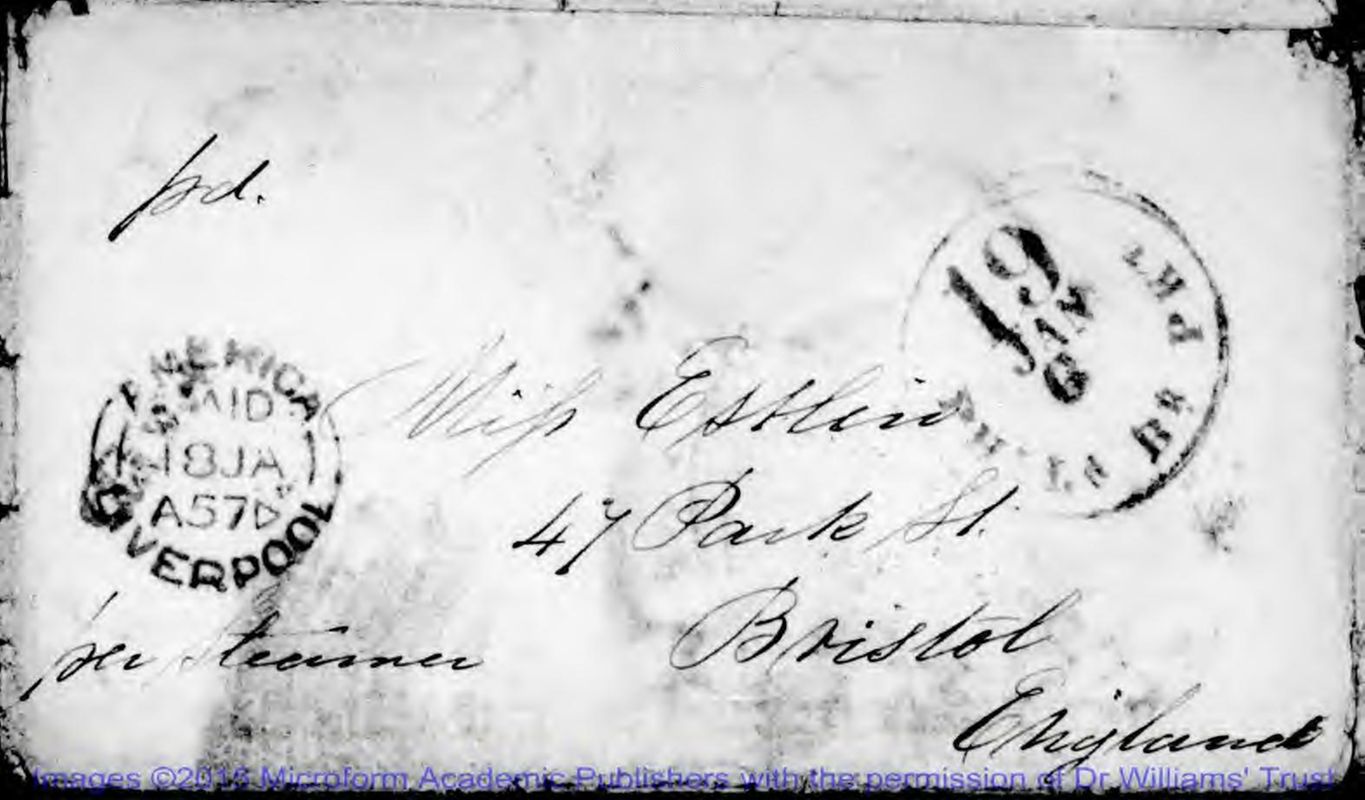 pd.
19
JAN
6
PKT
BR
AMERICA
PAID
18JA
A57
LIVERPOOL
Miss Estlin
47 Park St.
Bristol
England
per steamer
Images ©2015 Microform Academic Publishers with the permission of Dr Williams' Trust